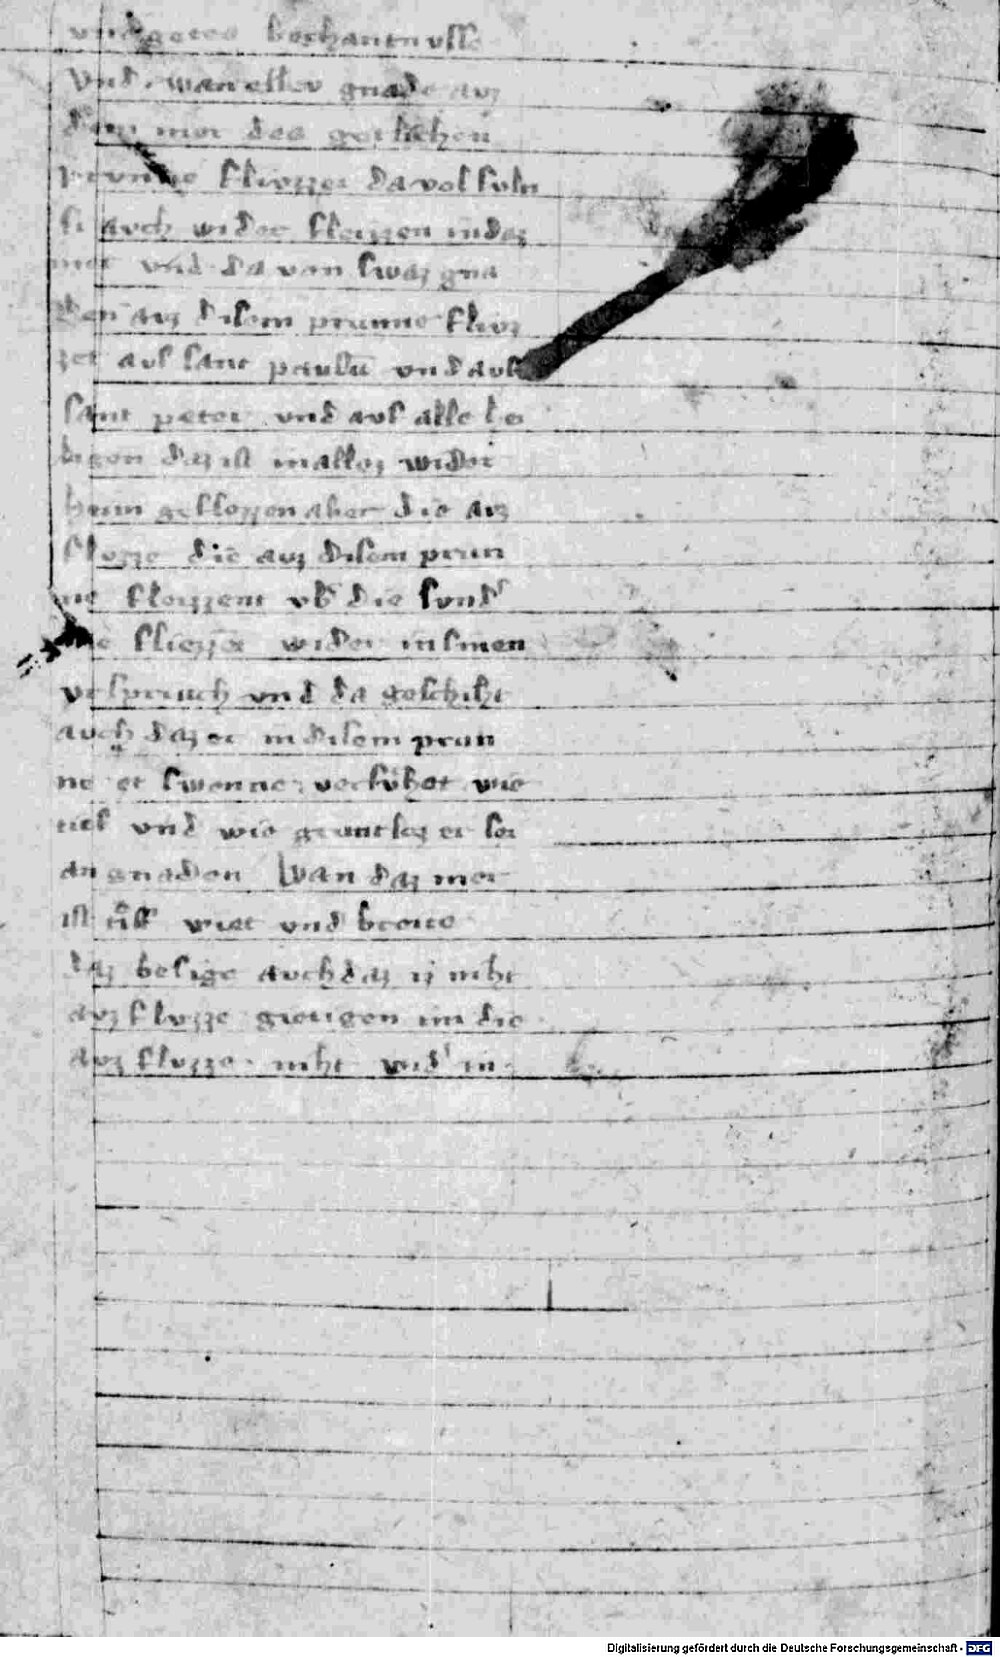 und gotes bechantnusse
Und. wan elleu gnade auz
dem mer des gotlichen
prunne fleuzzet da vol suln
si auch wider fleizzen in daz
mer und da von swaz gna
den auz disem prunne fleuz
zet auf sant paulū und auf
sant peter und auf alle hei
ligen daz ist in allez wider
heim geflozzen aber die auz
fluzze die auz disem prun
ne floizzent vb̄ die sund
wider in sinen
vrspruch und da geschiht
auch daz er in disem prun
ne er swenne versuhet wie
tief und wie gruntloz er sei
an gnaden Wan daz mer
ist tieff wiet und breite
daz auch daz niht
auzfluzze in die
auzfluzze niht wid' in
Digitalisierung gefördert durch die Deutsche Forschungsgemeinschaft - DFG